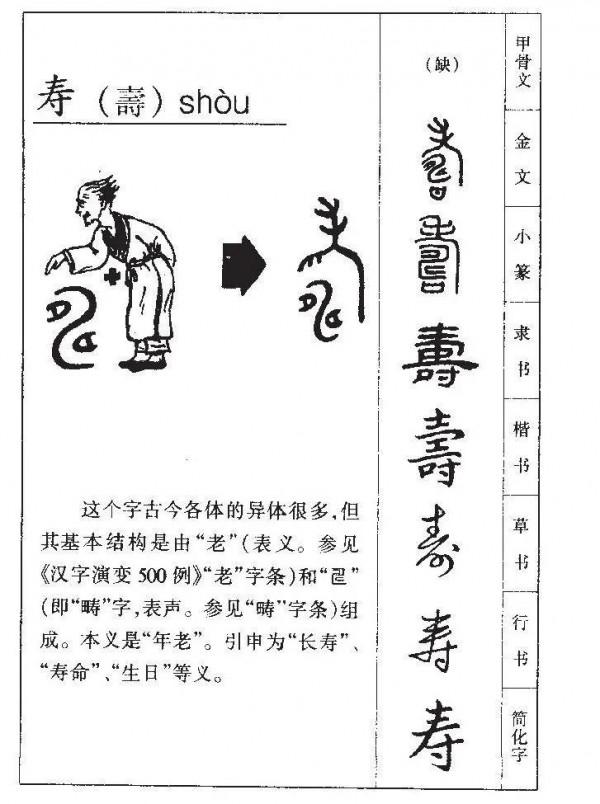 寿（壽）shòu
这个字古今各体的异体很多，但
其基本结构是由“老”（表义。参见
《汉字演变500例》“老”字条）和“𠃬”
（即“畴”字，表声。参见“畴”字条）组
成。本义是“年老”。引申为“长寿”、
“寿命”、“生日”等义。
（缺）
壽
壽
壽
壽
寿
寿
寿
甲骨文
金文
小篆
隶书
楷书
草书
行书
简化字